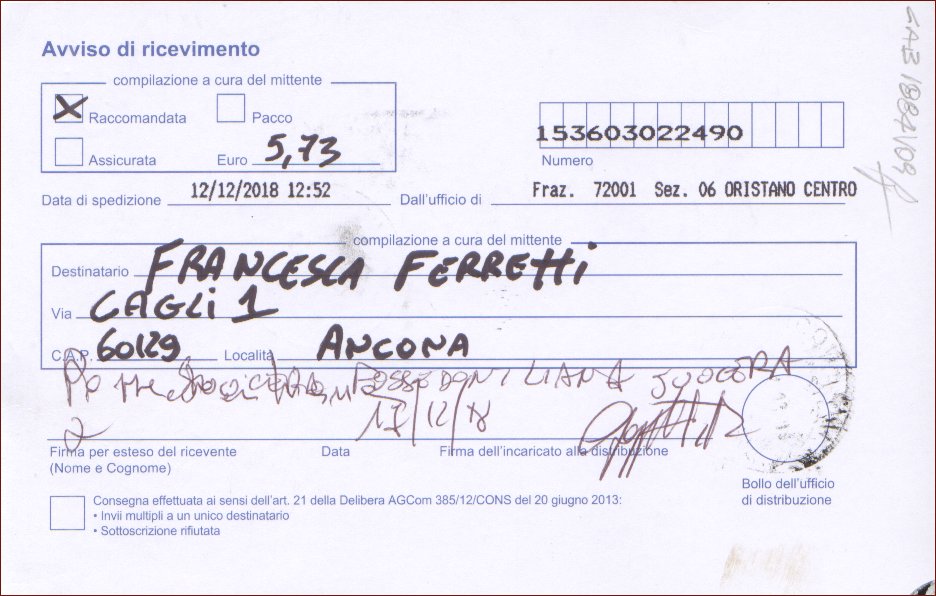 Avviso di ricevimento
compilazione a cura del mittente
Raccomandata
Pacco
Assicurata
Euro 5,73
153603022490
Numero
Data di spedizione 12/12/2018 12:52 Dall'ufficio di Fraz. 72001 Sez. 06 ORISTANO CENTRO
compilazione a cura del mittente
Destinatario FRANCESCA FERRETTI
Via CAGLI 1
C.A.P. 60129 Località ANCONA
LIANA SUOCERA
17/12/18
Firma per esteso del ricevente
(Nome e Cognome)
Data
Firma dell'incaricato alla distribuzione
Bollo dell'ufficio
di distribuzione
Consegna effettuata ai sensi dell'art. 21 della Delibera AGCom 385/12/CONS del 20 giugno 2013:
• Invii multipli a un unico destinatario
• Sottoscrizione rifiutata